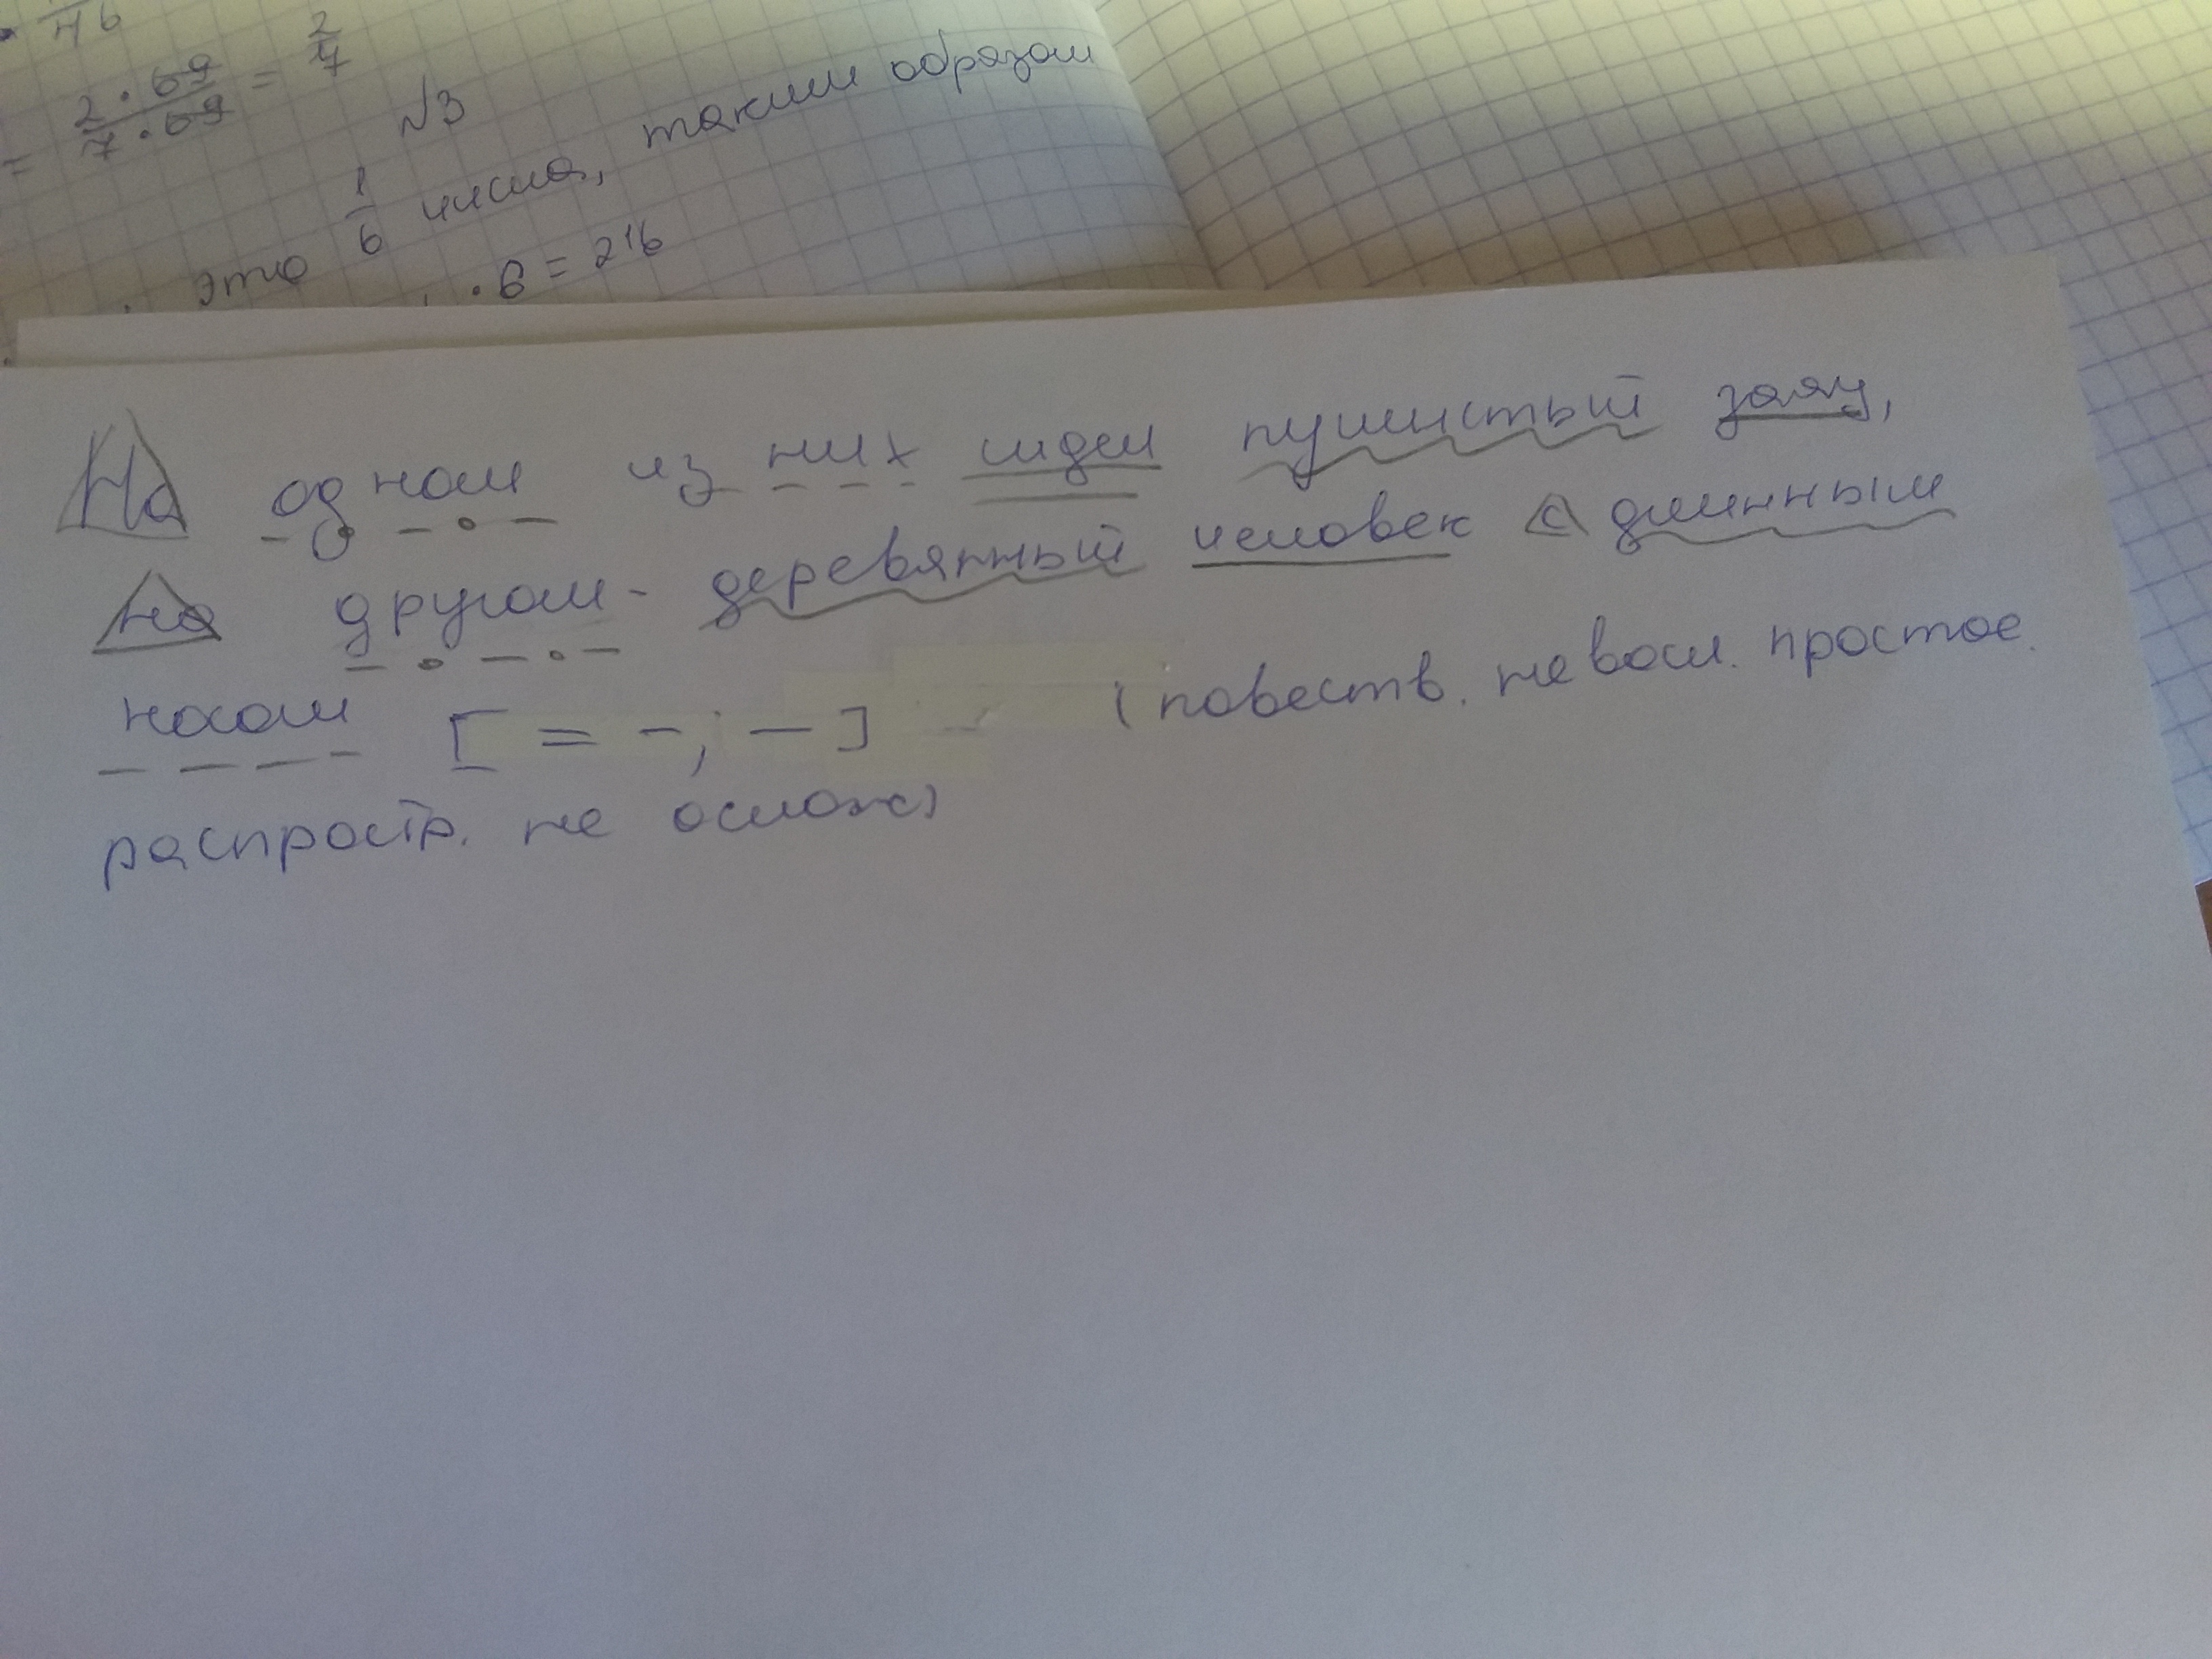 46
= 2 · 69 / 7 · 69 = 2/7
№3
это 1/6 числа, таким образом
· 6 = 216
На одном из них идел пушистый заяц,
на другом - деревянный человек с длинным
носом [ = -, - ] (повеств. невоскл. простое.
распростр. не ослож)